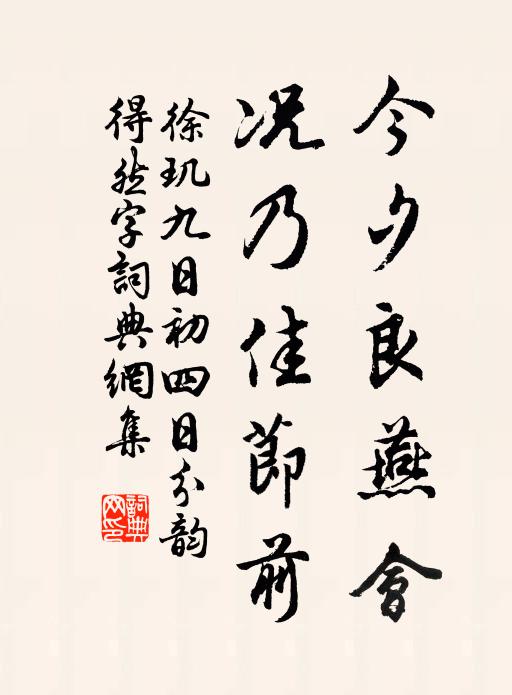 今夕良燕會
況乃佳節前
徐玑九日初四日分韵
得然字詞典網集
詞典
网印